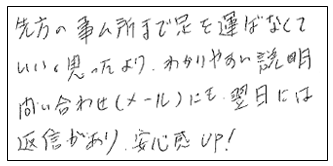 先方の事ム所まで足を運ばなくて
いいし思ったより、わかりやすい説明
問い合わせ(メール)にも翌日には
返信があり、安心感UP!